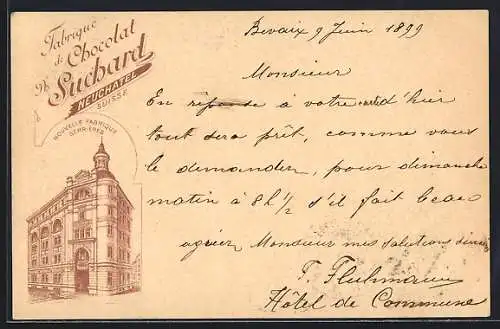 Fabrique
de Chocolat
Ph. Suchard
NEUCHATEL
SUISSE
NOUVELLE FABRIQUE
SERRIÈRES
Bevaix 9 Juin 1899
Monsieur
En réponse à votre d'hier
tout sera prêt, comme vous
le demandez, pour dimanche
matin à 8h 1/2 s'il fait beau
agréer Monsieur mes salutations
F. Fluhmann
Hôtel de Commune